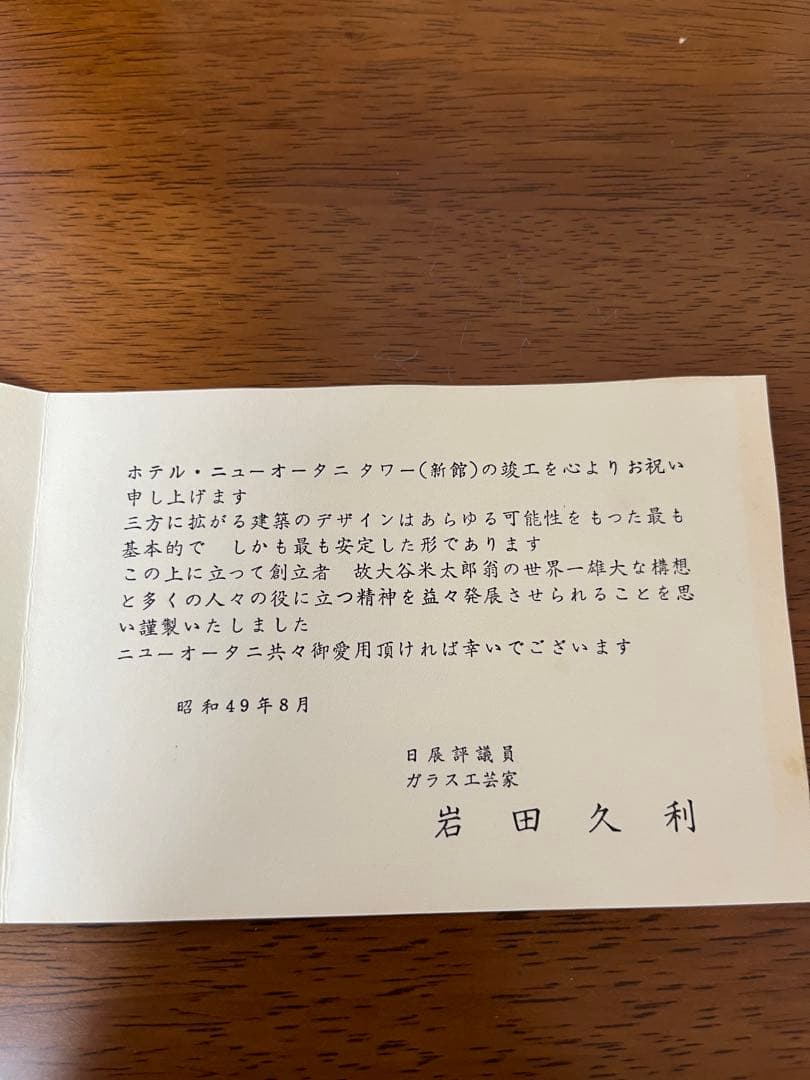 ホテル・ニューオータニ タワー(新館)の竣工を心よりお祝い
申し上げます
三方に拡がる建築のデザインはあらゆる可能性をもった最も
基本的で　しかも最も安定した形であります
この上に立って創立者　故大谷米太郎翁の世界一雄大な構想
と多くの人々の役に立つ精神を益々発展させられることを思
い謹製いたしました
ニューオータニ共々御愛用頂ければ幸いでございます
昭和49年8月
日展評議員
ガラス工芸家
岩田久利